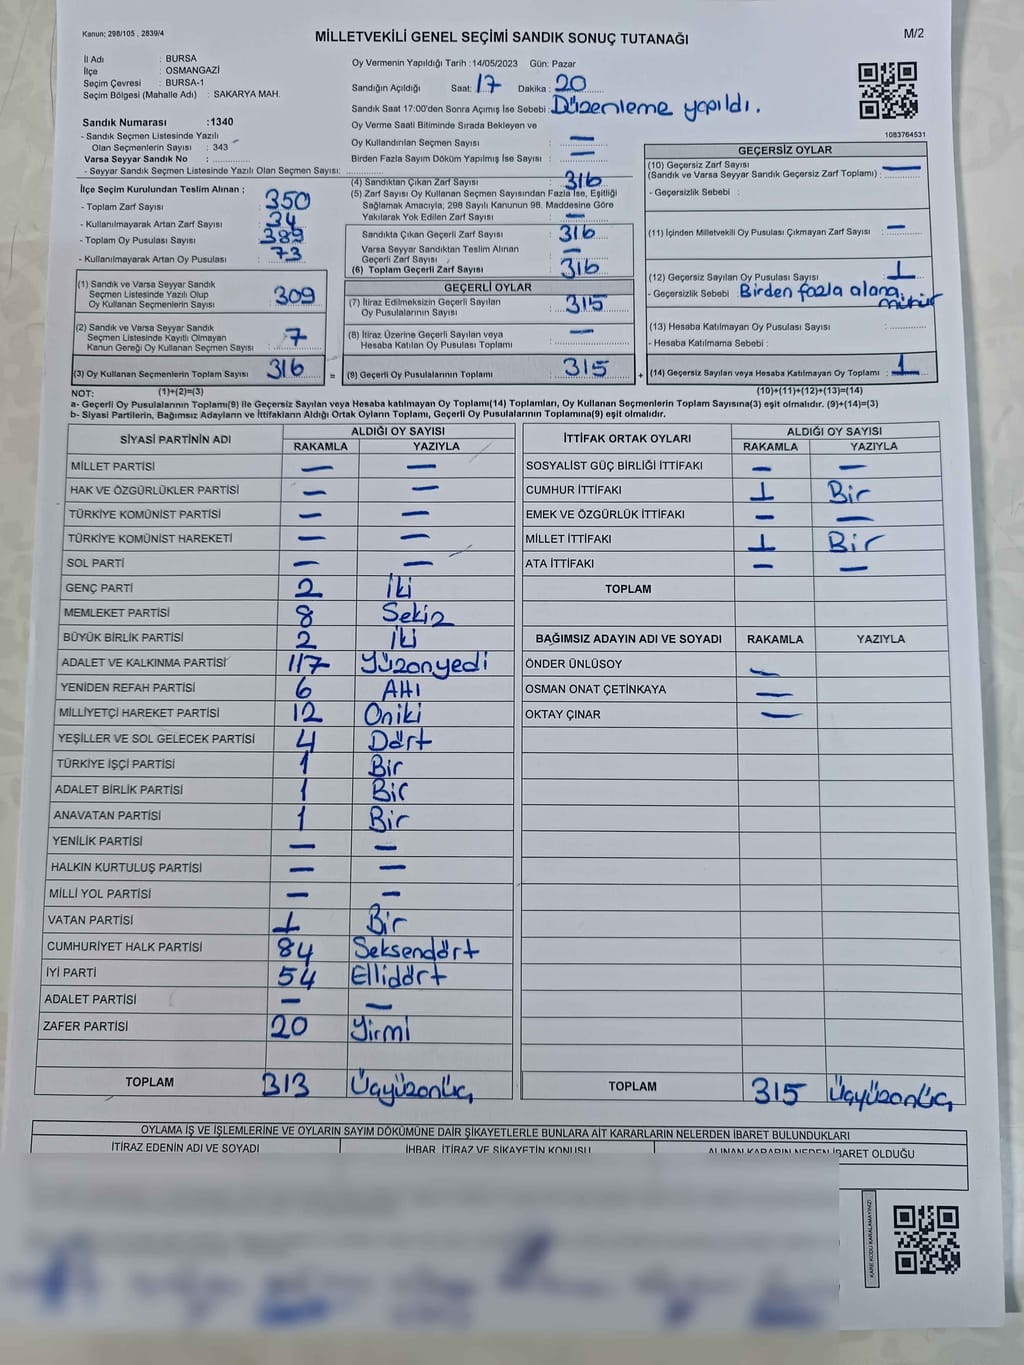 Kanun; 298/105 , 2839/4
MİLLETVEKİLİ GENEL SEÇİMİ SANDIK SONUÇ TUTANAĞI
M/2
İl Adı : BURSA
İlçe : OSMANGAZİ
Seçim Çevresi : BURSA-1
Seçim Bölgesi (Mahalle Adı) : SAKARYA MAH.
Sandık Numarası :1340
- Sandık Seçmen Listesinde Yazılı
Olan Seçmenlerin Sayısı : 343
Varsa Seyyar Sandık No :
- Seyyar Sandık Seçmen Listesinde Yazılı Olan Seçmen Sayısı:
Oy Vermenin Yapıldığı Tarih :14/05/2023 Gün: Pazar
Sandığın Açıldığı Saat: 17 Dakika: 20
Sandık Saat 17:00'den Sonra Açımış İse Sebebi : Düzenleme yapıldı.
Oy Verme Saati Bitiminde Sırada Bekleyen ve
Oy Kullandırılan Seçmen Sayısı : —
Birden Fazla Sayım Döküm Yapılmış İse Sayısı : —
1083764531
İlçe Seçim Kurulundan Teslim Alınan ;
- Toplam Zarf Sayısı : 350
- Kullanılmayarak Artan Zarf Sayısı : 34
- Toplam Oy Pusulası Sayısı : 389
- Kullanılmayarak Artan Oy Pusulası : 73
(1) Sandık ve Varsa Seyyar Sandık
Seçmen Listesinde Yazılı Olup
Oy Kullanan Seçmenlerin Sayısı : 309
(2) Sandık ve Varsa Seyyar Sandık
Seçmen Listesinde Kayıtlı Olmayan
Kanun Gereği Oy Kullanan Seçmen Sayısı : 7
(3) Oy Kullanan Seçmenlerin Toplam Sayısı : 316
(4) Sandıktan Çıkan Zarf Sayısı : 316
(5) Zarf Sayısı Oy Kullanan Seçmen Sayısından Fazla İse, Eşitliği
Sağlamak Amacıyla; 298 Sayılı Kanunun 98. Maddesine Göre
Yakılarak Yok Edilen Zarf Sayısı : —
Sandıkta Çıkan Geçerli Zarf Sayısı : 316
Varsa Seyyar Sandıktan Teslim Alınan
Geçerli Zarf Sayısı : —
(6) Toplam Geçerli Zarf Sayısı : 316
GEÇERLİ OYLAR
(7) İtiraz Edilmeksizin Geçerli Sayılan
Oy Pusulalarının Sayısı : 315
(8) İtiraz Üzerine Geçerli Sayılan veya
Hesaba Katılan Oy Pusulası Toplamı : —
= (9) Geçerli Oy Pusulalarının Toplamı : 315 +
GEÇERSİZ OYLAR
(10) Geçersiz Zarf Sayısı
(Sandık ve Varsa Seyyar Sandık Geçersiz Zarf Toplamı) : —
- Geçersizlik Sebebi :
(11) İçinden Milletvekili Oy Pusulası Çıkmayan Zarf Sayısı : —
(12) Geçersiz Sayılan Oy Pusulası Sayısı : 1
- Geçersizlik Sebebi : Birden fazla alana
mühür
(13) Hesaba Katılmayan Oy Pusulası Sayısı :
- Hesaba Katılmama Sebebi :
(14) Geçersiz Sayılan veya Hesaba Katılmayan Oy Toplamı : 1
NOT: (1)+(2)=(3) (10)+(11)+(12)+(13)=(14)
a- Geçerli Oy Pusulalarının Toplamı(9) ile Geçersiz Sayılan veya Hesaba katılmayan Oy Toplamı(14) Toplamları, Oy Kullanan Seçmenlerin Toplam Sayısına(3) eşit olmalıdır. (9)+(14)=(3)
b- Siyasi Partilerin, Bağımsız Adayların ve İttifakların Aldığı Ortak Oyların Toplamı, Geçerli Oy Pusulalarının Toplamına(9) eşit olmalıdır.
SİYASİ PARTİNİN ADI ALDIĞI OY SAYISI
RAKAMLA YAZIYLA
MİLLET PARTİSİ — —
HAK VE ÖZGÜRLÜKLER PARTİSİ — —
TÜRKİYE KOMÜNİST PARTİSİ — —
TÜRKİYE KOMÜNİST HAREKETİ — —
SOL PARTİ — —
GENÇ PARTİ 2 İki
MEMLEKET PARTİSİ 8 Sekiz
BÜYÜK BİRLİK PARTİSİ 2 İki
ADALET VE KALKINMA PARTİSİ 117 Yüzonyedi
YENİDEN REFAH PARTİSİ 6 Altı
MİLLİYETÇİ HAREKET PARTİSİ 12 Oniki
YEŞİLLER VE SOL GELECEK PARTİSİ 4 Dört
TÜRKİYE İŞÇİ PARTİSİ 1 Bir
ADALET BİRLİK PARTİSİ 1 Bir
ANAVATAN PARTİSİ 1 Bir
YENİLİK PARTİSİ — —
HALKIN KURTULUŞ PARTİSİ — —
MİLLİ YOL PARTİSİ — —
VATAN PARTİSİ 1 Bir
CUMHURİYET HALK PARTİSİ 84 Seksendört
İYİ PARTİ 54 Ellidört
ADALET PARTİSİ — —
ZAFER PARTİSİ 20 Yirmi
TOPLAM 313 Üçyüzonüç
İTTİFAK ORTAK OYLARI ALDIĞI OY SAYISI
RAKAMLA YAZIYLA
SOSYALİST GÜÇ BİRLİĞİ İTTİFAKI — —
CUMHUR İTTİFAKI 1 Bir
EMEK VE ÖZGÜRLÜK İTTİFAKI — —
MİLLET İTTİFAKI 1 Bir
ATA İTTİFAKI — —
TOPLAM
BAĞIMSIZ ADAYIN ADI VE SOYADI RAKAMLA YAZIYLA
ÖNDER ÜNLÜSOY —
OSMAN ONAT ÇETİNKAYA —
OKTAY ÇINAR —
TOPLAM 315 Üçyüzonüç
OYLAMA İŞ VE İŞLEMLERİNE VE OYLARIN SAYIM DÖKÜMÜNE DAİR ŞİKAYETLERLE BUNLARA AİT KARARLARIN NELERDEN İBARET BULUNDUKLARI
İTİRAZ EDENİN ADI VE SOYADI İHBAR, İTİRAZ VE ŞİKAYETİN KONUSU ALINAN KARARIN NEDEN İBARET OLDUĞU
KARE KODU KARALAMAYINIZ!